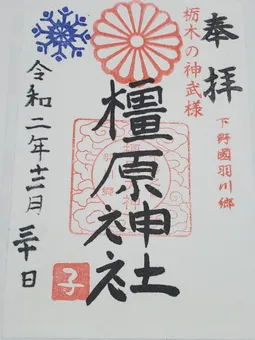 奉拝
下野國羽川郷
栃木の神武様
橿原神社
令和二年十二月三十日
子